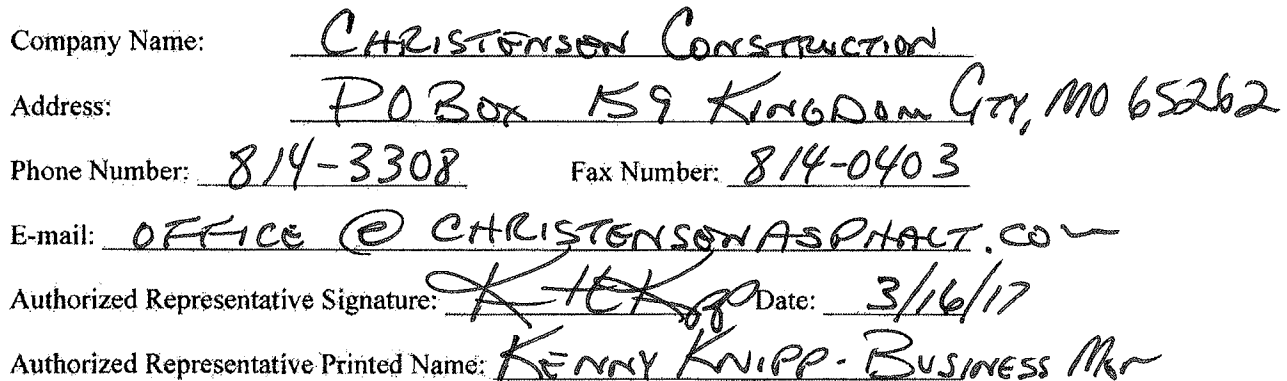 Company Name: CHRISTENSEN CONSTRUCTION
Address: PO BOX 159 KINGDOM CITY, MO 65262
Phone Number: 814-3308 Fax Number: 814-0403
E-mail: OFFICE @ CHRISTENSENASPHALT.COM
Authorized Representative Signature: Date: 3/16/17
Authorized Representative Printed Name: KENNY KNIPP - BUSINESS MGR